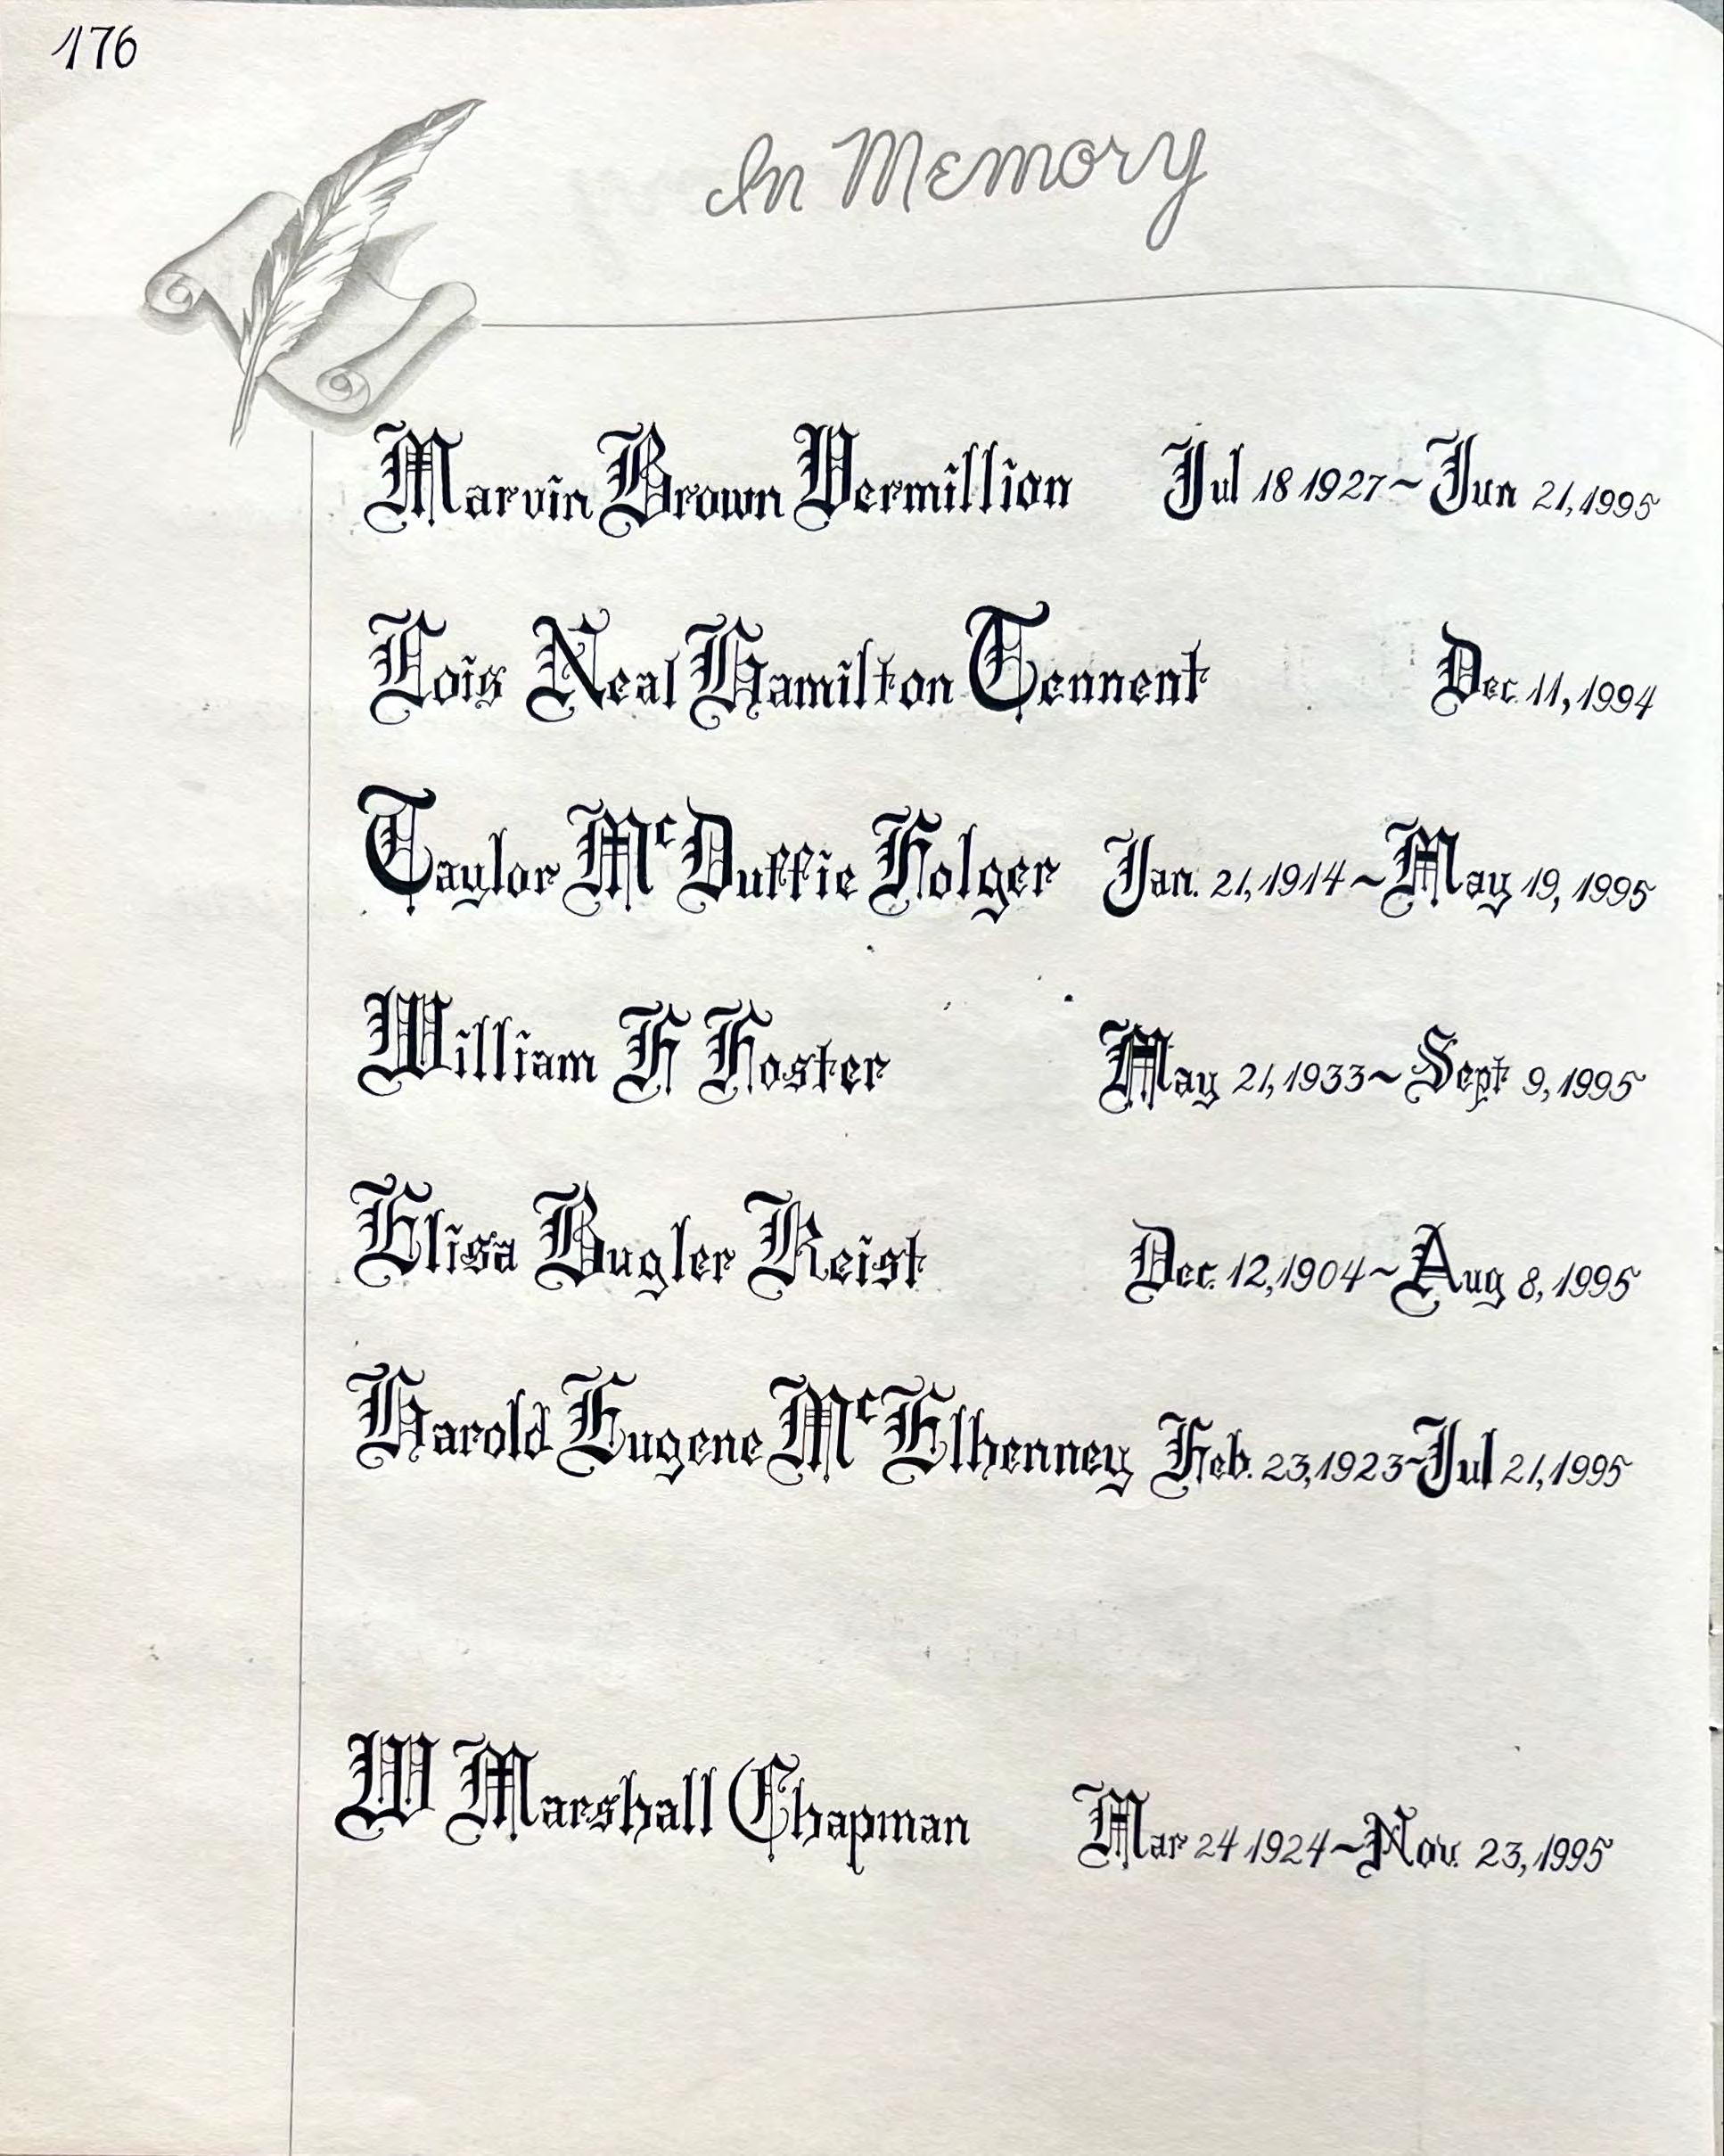 176
In Memory
Marvin Brown Vermillion Jul 18 1927~Jun 21, 1995
Lois Neal Hamilton Tennent Dec. 11, 1994
Taylor McDuffie Folger Jan. 21, 1914~May 19, 1995
William F Foster May 21, 1933~Sept 9, 1995
Elisa Bugler Reist Dec. 12, 1904~Aug 8, 1995
Harold Eugene McElhenney Feb. 23, 1923~Jul 21, 1995
W Marshall Chapman Mar 24 1924~Nov. 23, 1995